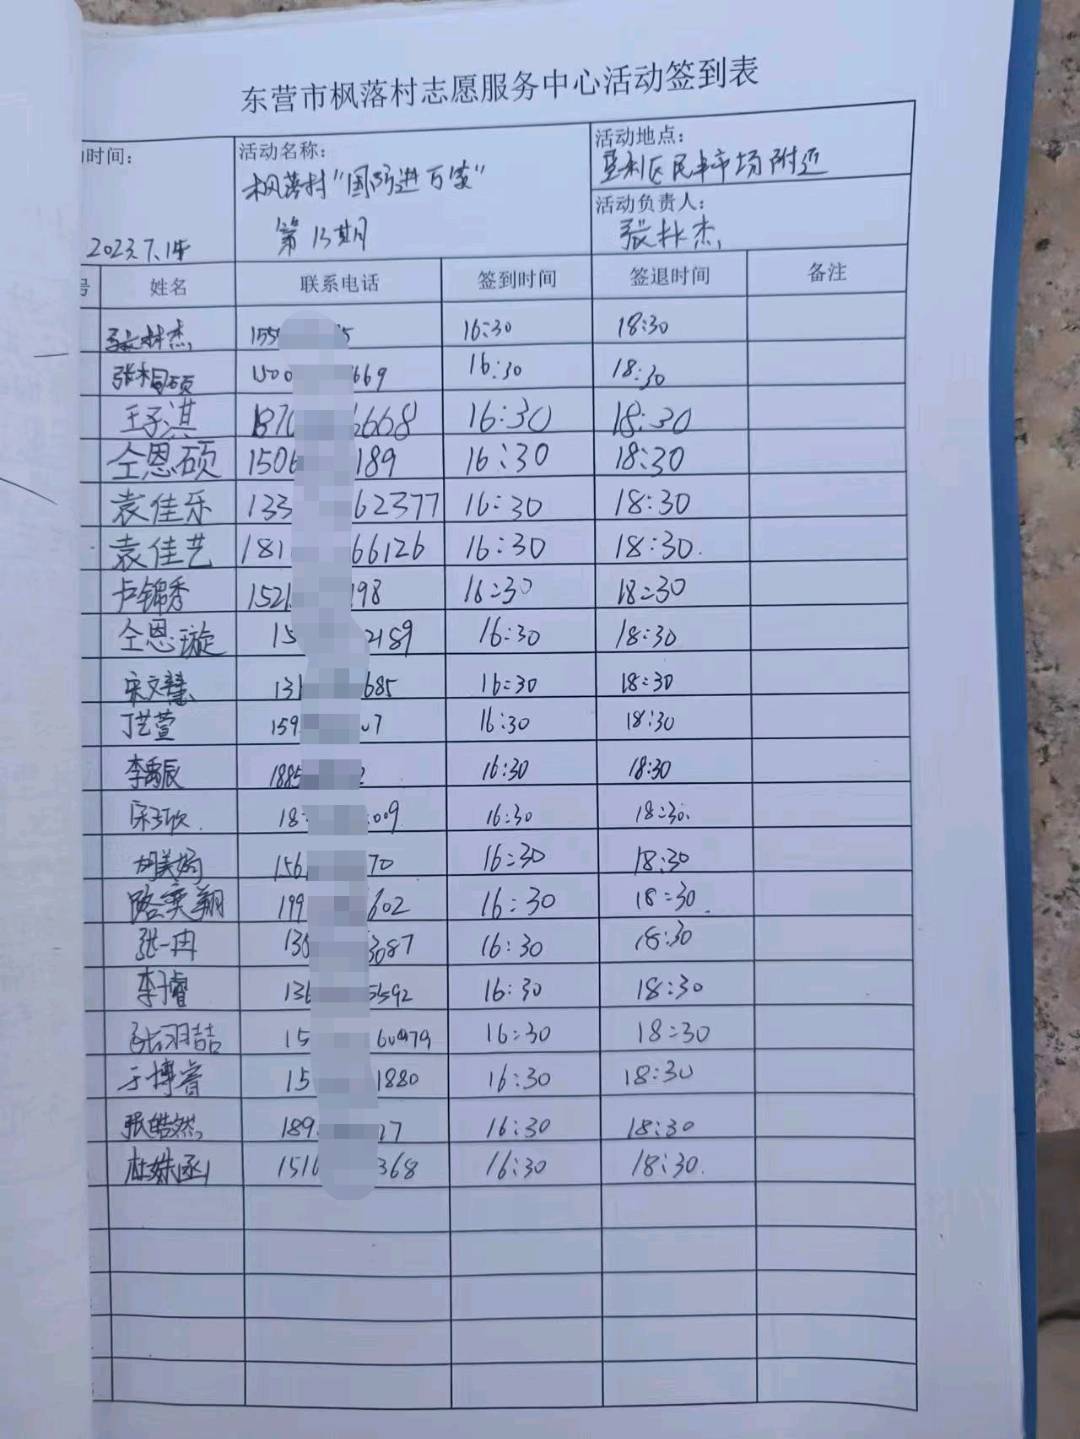 东营市枫落村志愿服务中心活动签到表
时间：
2023.7.14
活动名称：
枫落村“国防进万家”
第13期
活动地点：
垦利区民丰市场附近
活动负责人：
张林杰
号 姓名 联系电话 签到时间 签退时间 备注
张林杰 155 5 16:30 18:30
张相硕 1500 669 16:30 18:30
王子淇 1870 6668 16:30 18:30
仝恩硕 1506 189 16:30 18:30
袁佳乐 133 62377 16:30 18:30
袁佳艺 181 66126 16:30 18:30.
卢锦秀 1521 198 16:30 18:30
仝恩璇 15 2189 16:30 18:30
宋文慧 131 685 16:30 18:30
丁艺萱 159 07 16:30 18:30
李禹辰 1885 2 16:30 18:30
18 009 16:30 18:30.
胡美嫣 156 70 16:30 18:30
路奕翔 199 602 16:30 18:30.
张一冉 135 3087 16:30 18:30
李子睿 136 5592 16:30 18:30
张羽喆 15 60979 16:30 18:30
于博睿 15 1880 16:30 18:30
张皓然 189 17 16:30 18:30
杜姝函 1516 368 16:30 18:30.